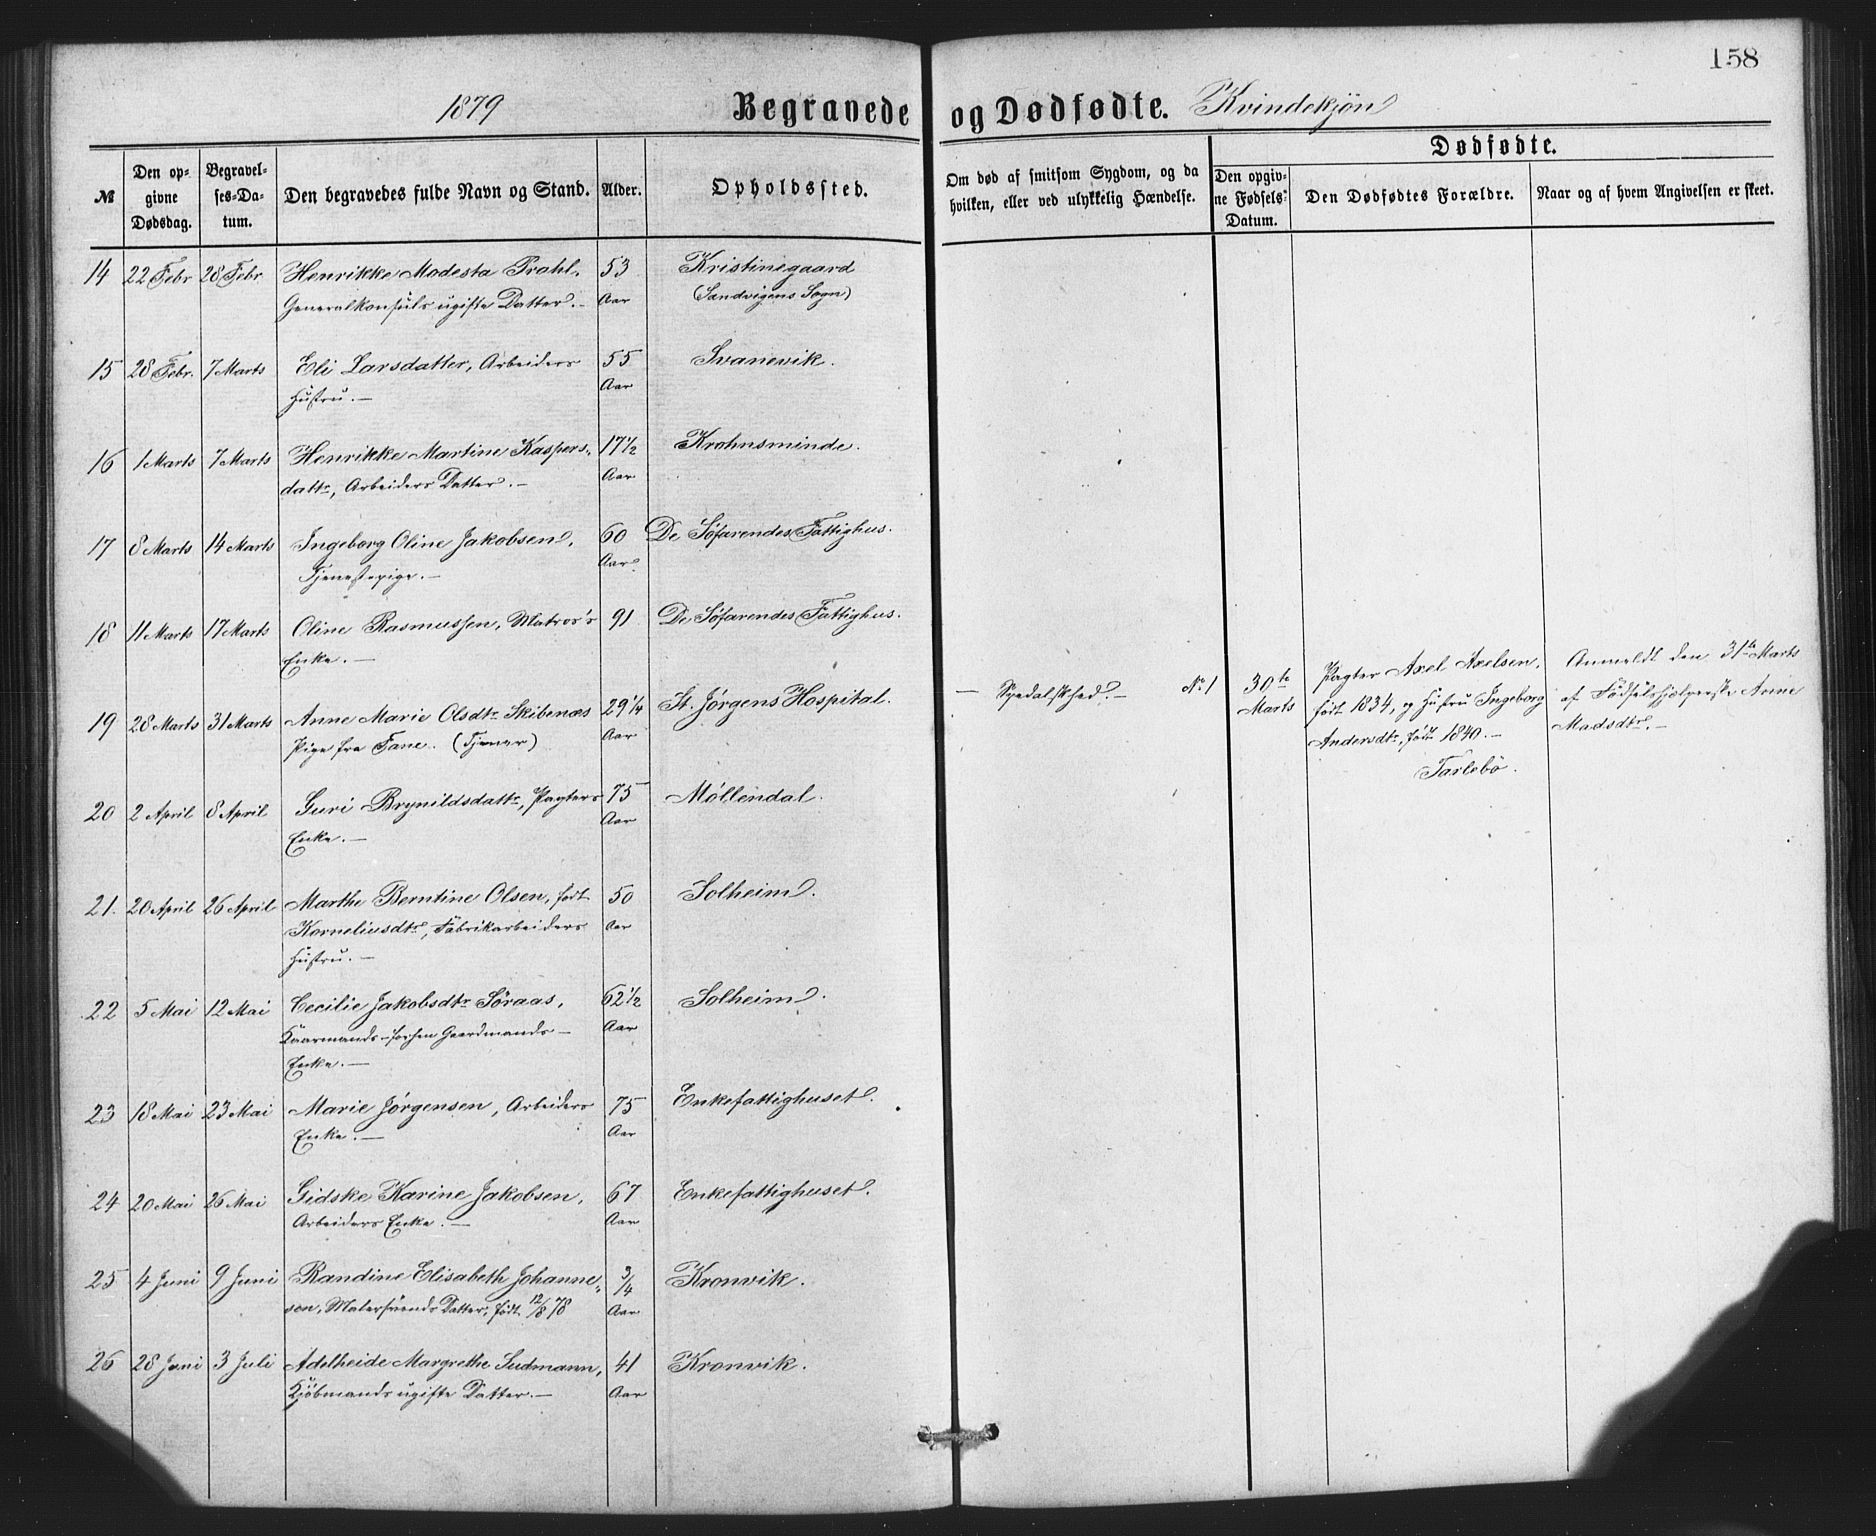 158
1879 Begravede og Dødfødte. Kvindekjøn
№ Den opgivne Dødsdag. Begravelses-Datum. Den begravedes fulde Navn og Stand. Alder. Opholdssted. Om død af smitsom Sygdom, og da hvilken, eller ved ulykkelig Hændelse. Dødfødte. Den opgivne Fødsels-Datum. Den Dødfødtes Forældre. Naar og af hvem Angivelsen er skeet.
14 22 Febr 28 Febr Henrikke Modesta Prahl. 53 Kristinegaard
Generalkonsuls ugifte Datter.- Aar (Sandvigens Sogn)
15 28 Febr. 7 Marts Eli Larsdatter, Arbeiders 55 Svanevik.
Hustru.- Aar
16 1 Marts 7 Marts Henrikke Martine Kaspers- 17½ Krohnsminde.
datr, Arbeiders Datter.- Aar
17 8 Marts 14 Marts Ingeborg Oline Jakobsen. 60 De Søfarendes Fattighus.
Tjenestepige.- Aar
18 11 Marts 17 Marts Oline Rasmussen, Matros's 91 De Søfarendes Fattighus.
Enke.-
19 28 Marts 31 Marts Anne Marie Olsdtr Skibenæs 29¼ St. Jørgens Hospital. - Spedalskhed.- No 1 30te Marts
Pige fra Fane. (Tjener) Aar
Pagter Axel Axelsen,
født 1834, og Hustru Ingeborg
Andersdtr, født 1840.-
Tarlebø.
Anmeldt den 31te Marts
af Fødselshjælperske Anne
Madsdtr.-
20 2 April 8 April Guri Brynildsdattr, Pagters 75 Møllendal.
Enke.- Aar
21. 20 April 26 April Marthe Berntine Olsen, født 50 Solheim.
Korneliusdtr, Fabrikarbeiders Aar
Hustru.-
22 5 Mai 12 Mai Cecilie Jakobsdtr Søraas, 62½ Solheim.
Kaarmands- forhen Gaardmands- Aar
Enke.-
23 18 Mai 23 Mai Marie Jørgensen, Arbeiders 75 Enkefattighuset.
Enke.- Aar
24 20 Mai 26 Mai Gidske Karine Jakobsen, 67 Enkefattighuset.
Arbeiders Enke.- Aar
25 4 Juni 9 Juni Randine Elisabeth Johanne- ¾ Kronvik.
sen, Malersvends Datter, født 12/8 78 Aar
26 28 Juni 3 Juli Adelheide Margrethe Sudmann, 41 Kronvik.
Kjøbmands ugifte Datter.- Aar